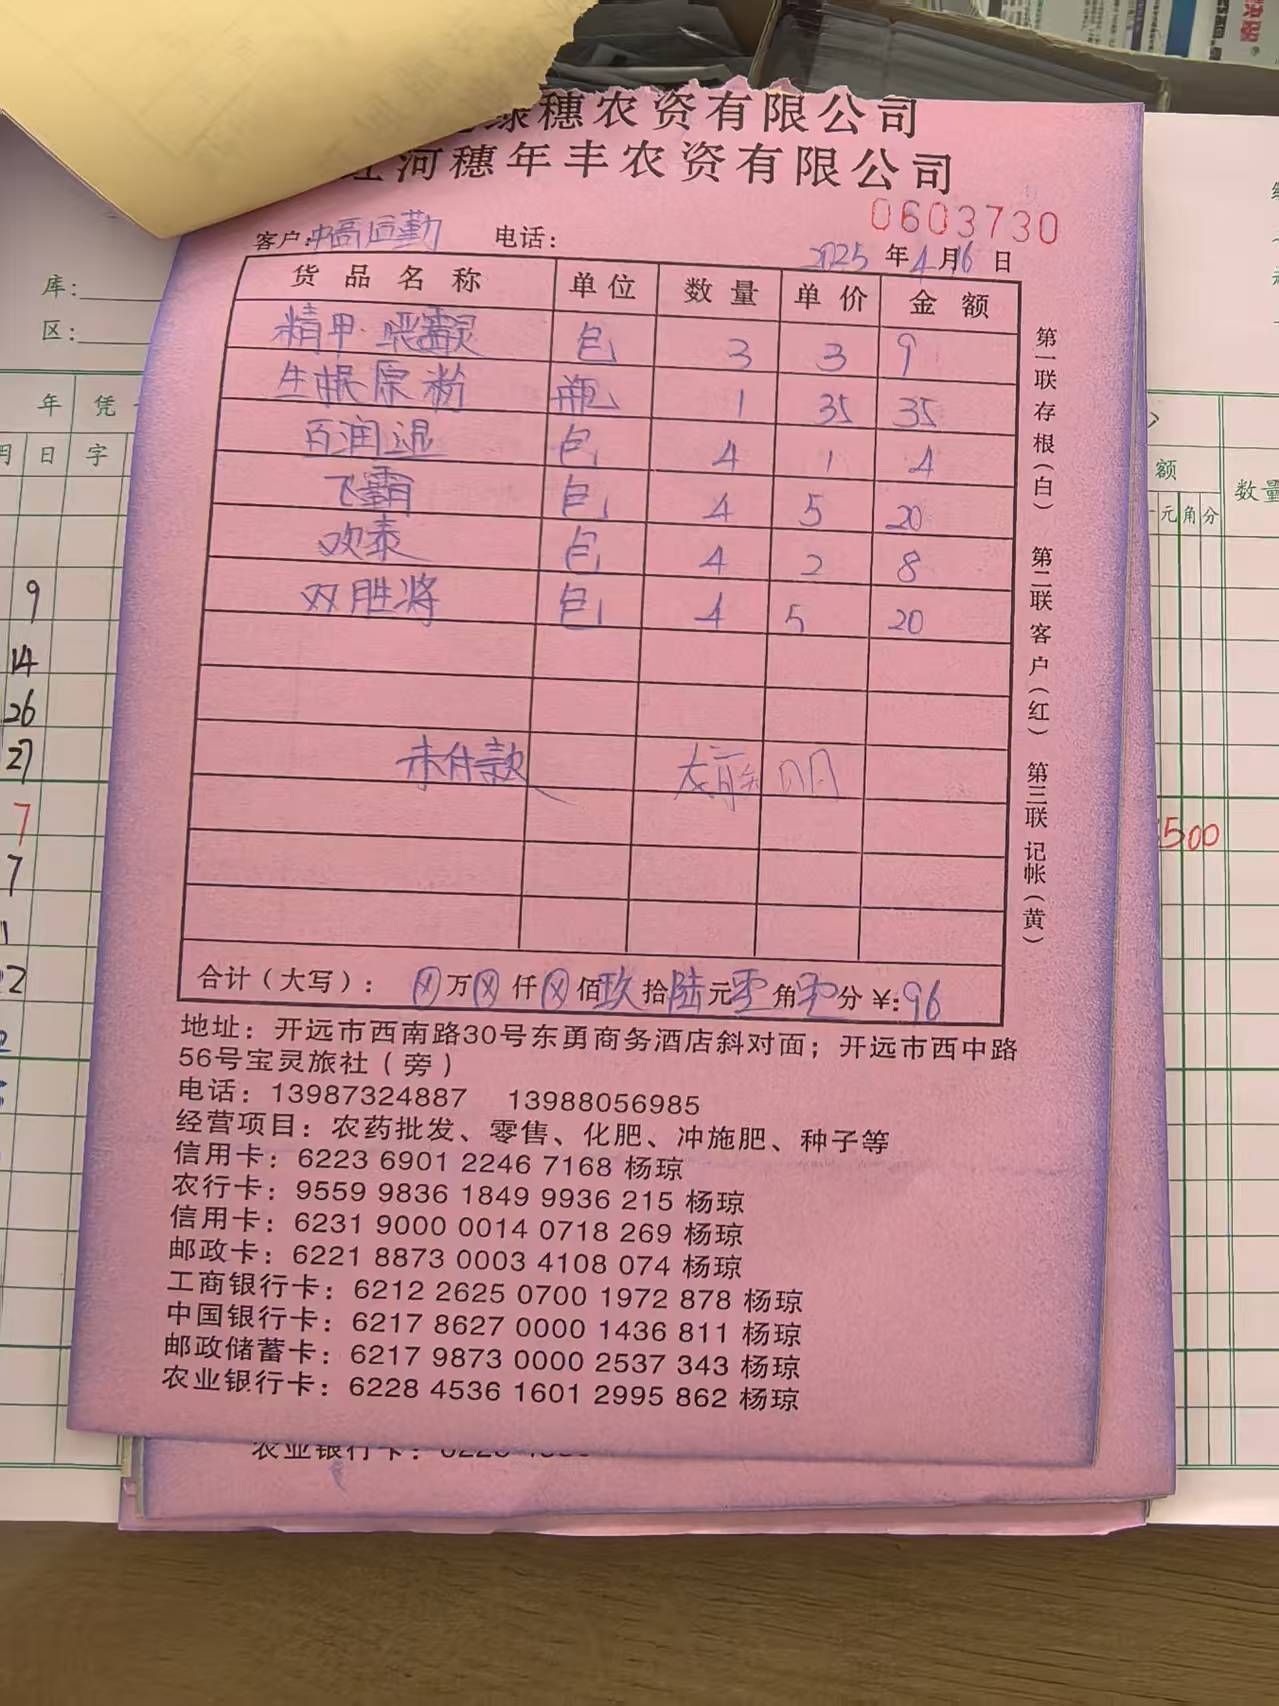 穗农资有限公司
河穗年丰农资有限公司
0603730
客户: 电话:
2025 年 4 月 16 日
货品名称 单位 数量 单价 金额
精甲·噁霉灵 包 3 3 9
生根原粉 瓶 1 35 35
百润 包 4 1 4
飞霸 包 4 5 20
欢泰 包 4 2 8
双胜将 包 4 5 20
未付款
合计(大写): 万 仟 佰 玖 拾 陆 元 零 角 零 分 ¥:96
第一联存根(白) 第二联客户(红) 第三联记帐(黄)
地址: 开远市西南路30号东勇商务酒店斜对面; 开远市西中路
56号宝灵旅社(旁)
电话: 13987324887 13988056985
经营项目: 农药批发、零售、化肥、冲施肥、种子等
信用卡: 6223 6901 2246 7168 杨琼
农行卡: 9559 9836 1849 9936 215 杨琼
信用卡: 6231 9000 0014 0718 269 杨琼
邮政卡: 6221 8873 0003 4108 074 杨琼
工商银行卡: 6212 2625 0700 1972 878 杨琼
中国银行卡: 6217 8627 0000 1436 811 杨琼
邮政储蓄卡: 6217 9873 0000 2537 343 杨琼
农业银行卡: 6228 4536 1601 2995 862 杨琼
农业银行卡:
库:
区:
年 凭
月 日 字
9
14
26
27
7
7
额
元 角 分
数量
500